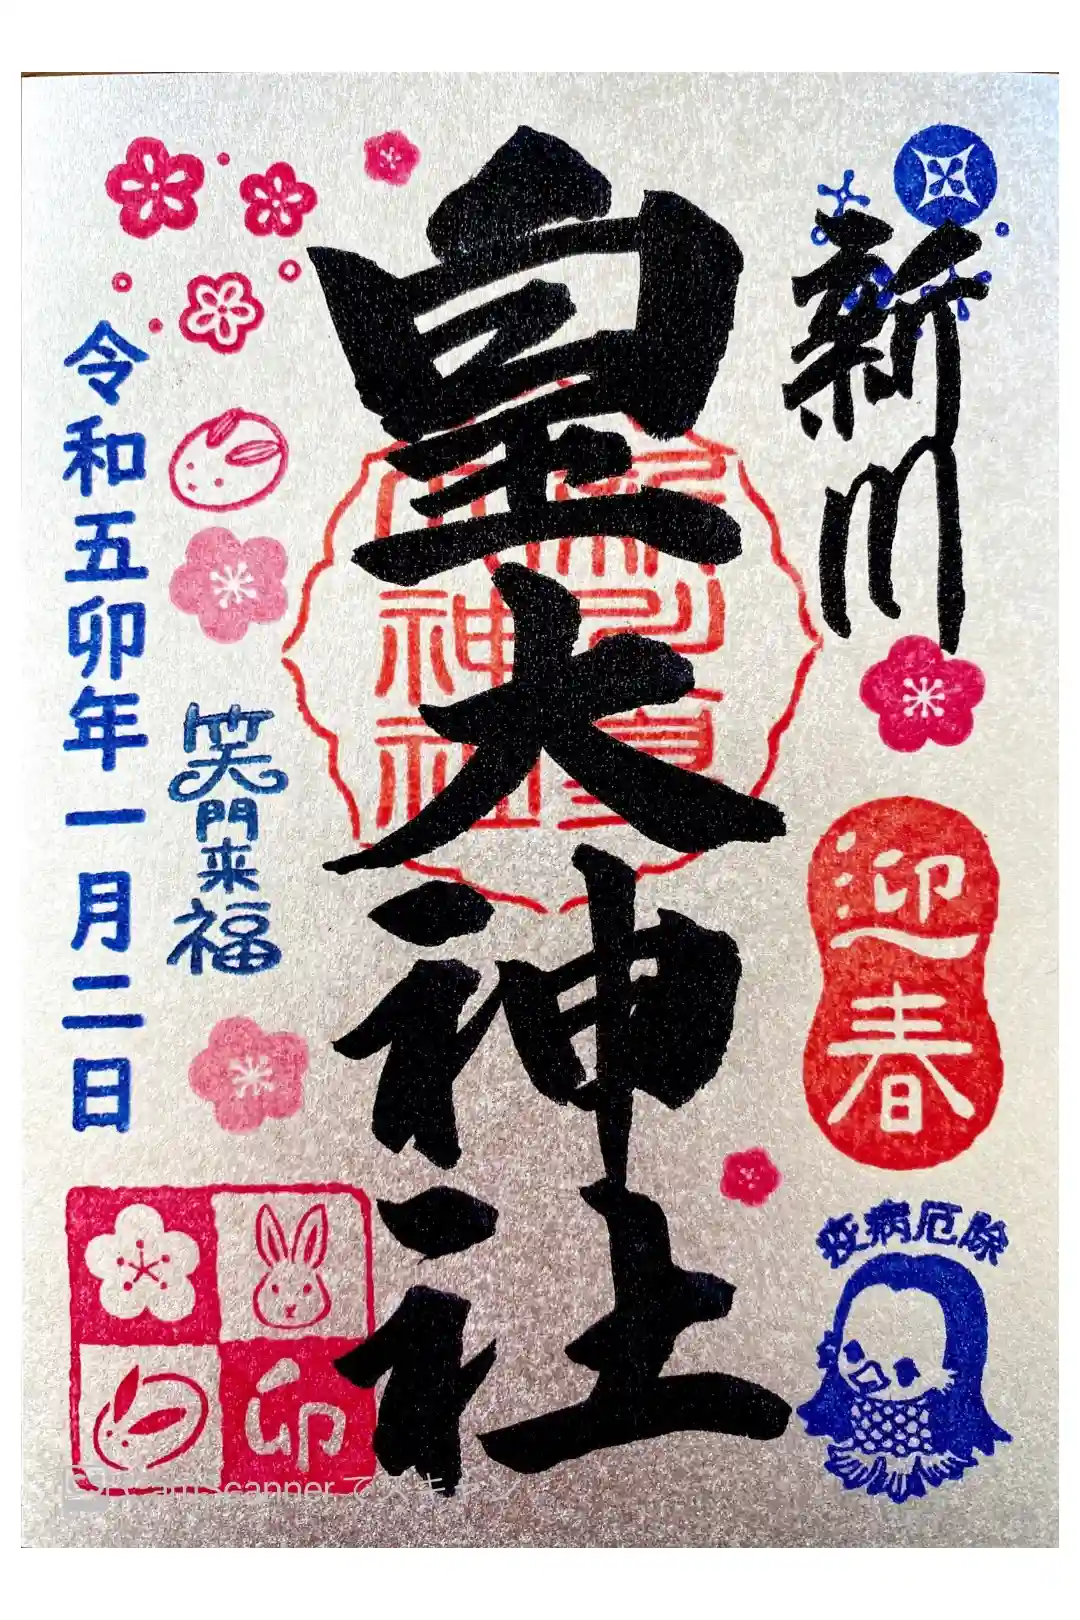 新川
迎春
疫病厄除
皇大神社
笑門来福
令和五卯年一月二日
卯
CamScanner でスキャン